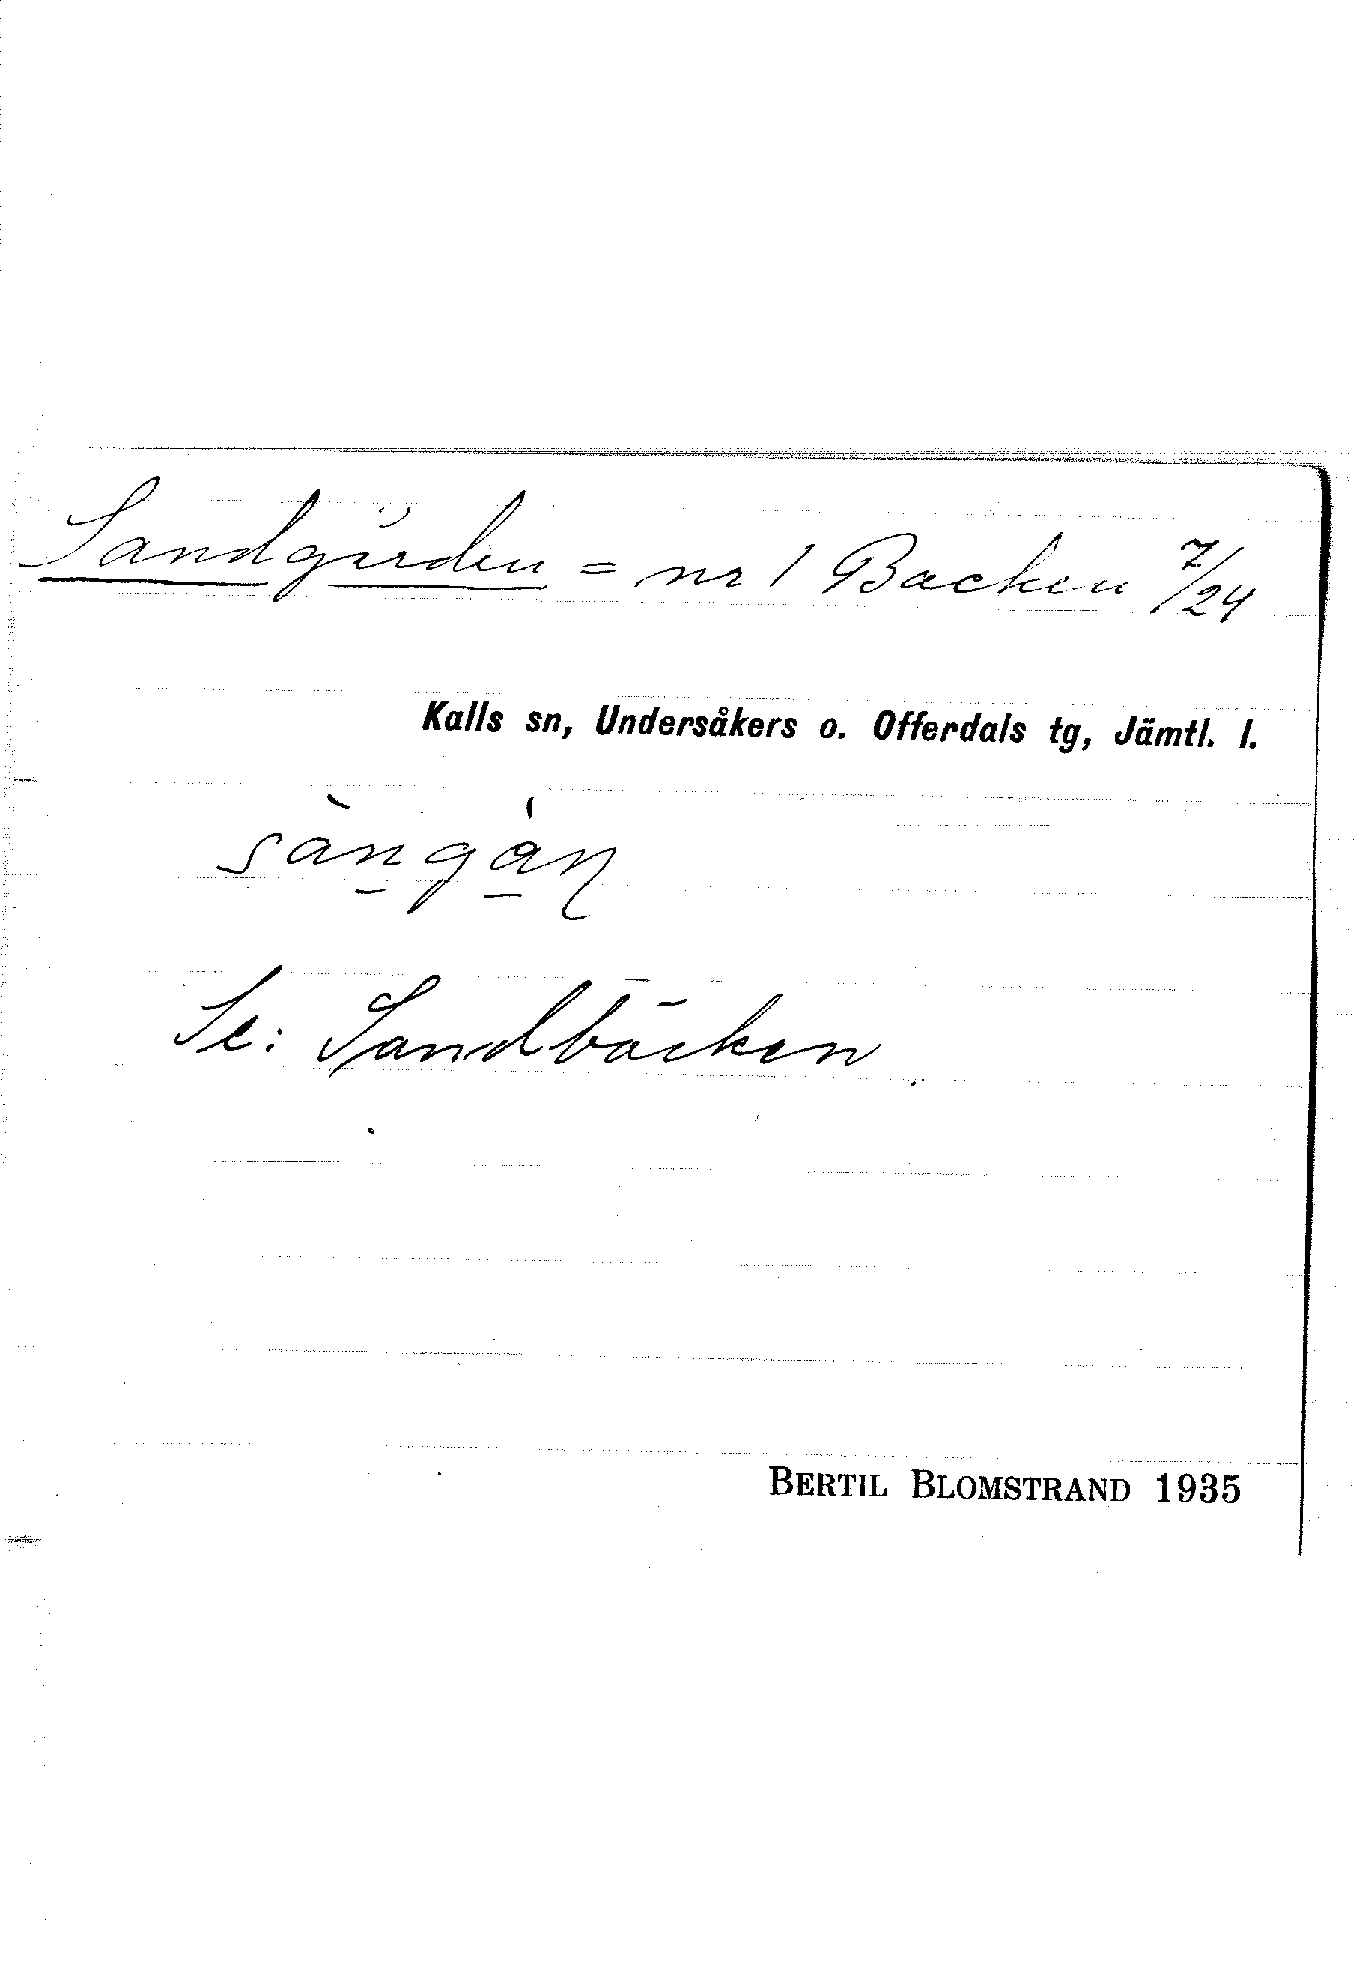 Sandgården = nr 1 Backen 7/24
Kalls sn, Undersåkers o. Offerdals tg, Jämtl. l.
sàngán
Se: Sandbäcken
BERTIL BLOMSTRAND 1935